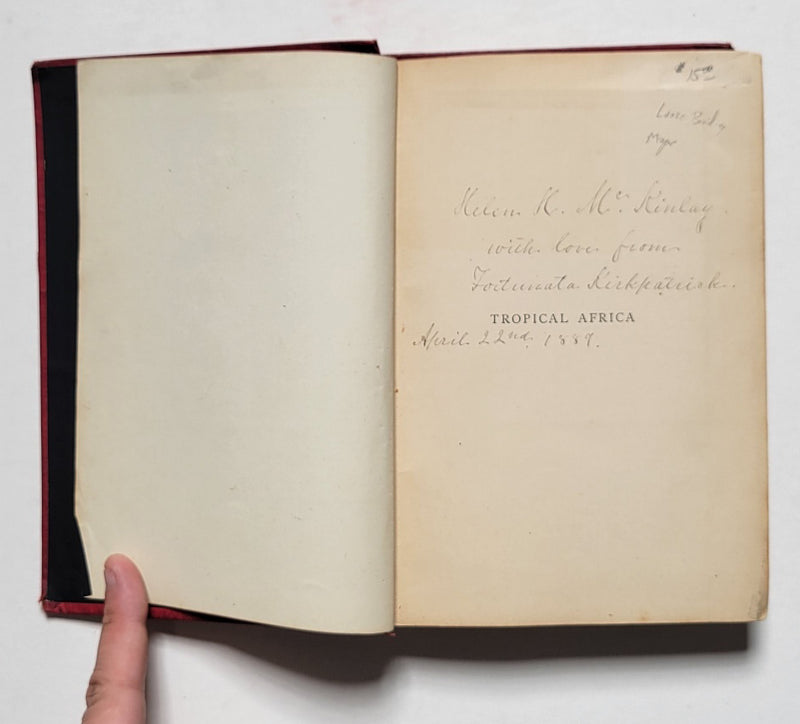 $15.00
Helen H. Mc. Kinlay.
with love from
Fortunata Kirkpatrick.
TROPICAL AFRICA
April 22nd. 1889.